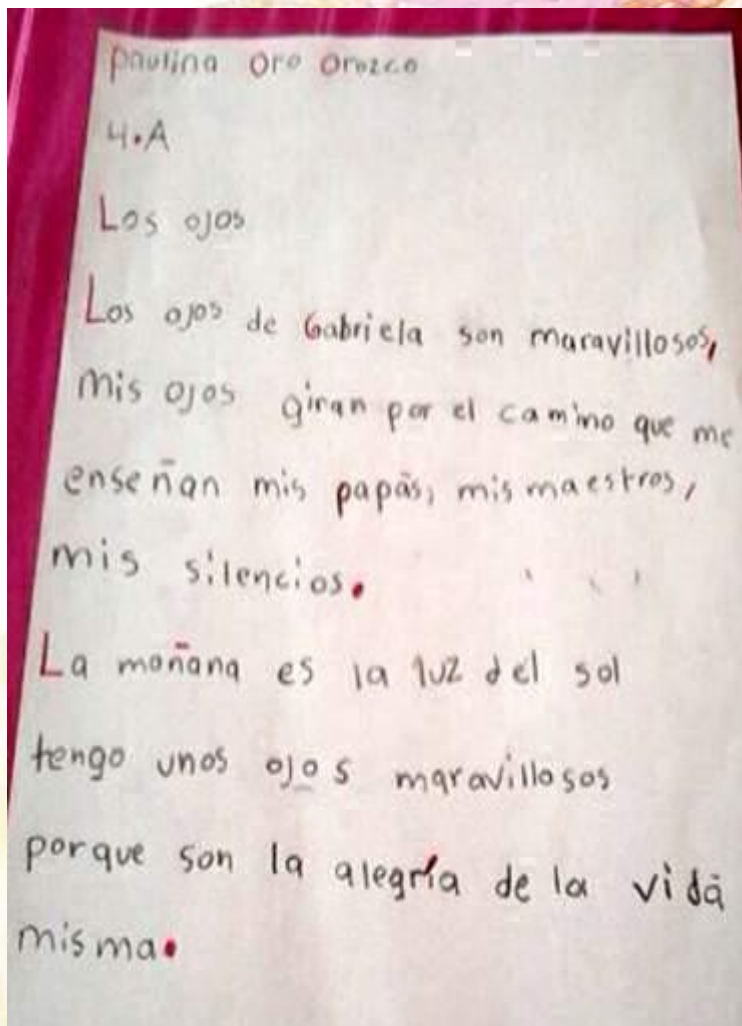 Paulina Oro Orozco
4.A
Los ojos
Los ojos de Gabriela son maravillosos,
Mis ojos giran por el camino que me
enseñan mis papás, mis maestros,
mis silencios.
La mañana es la luz del sol
tengo unos ojos maravillosos
porque son la alegría de la vida
misma.